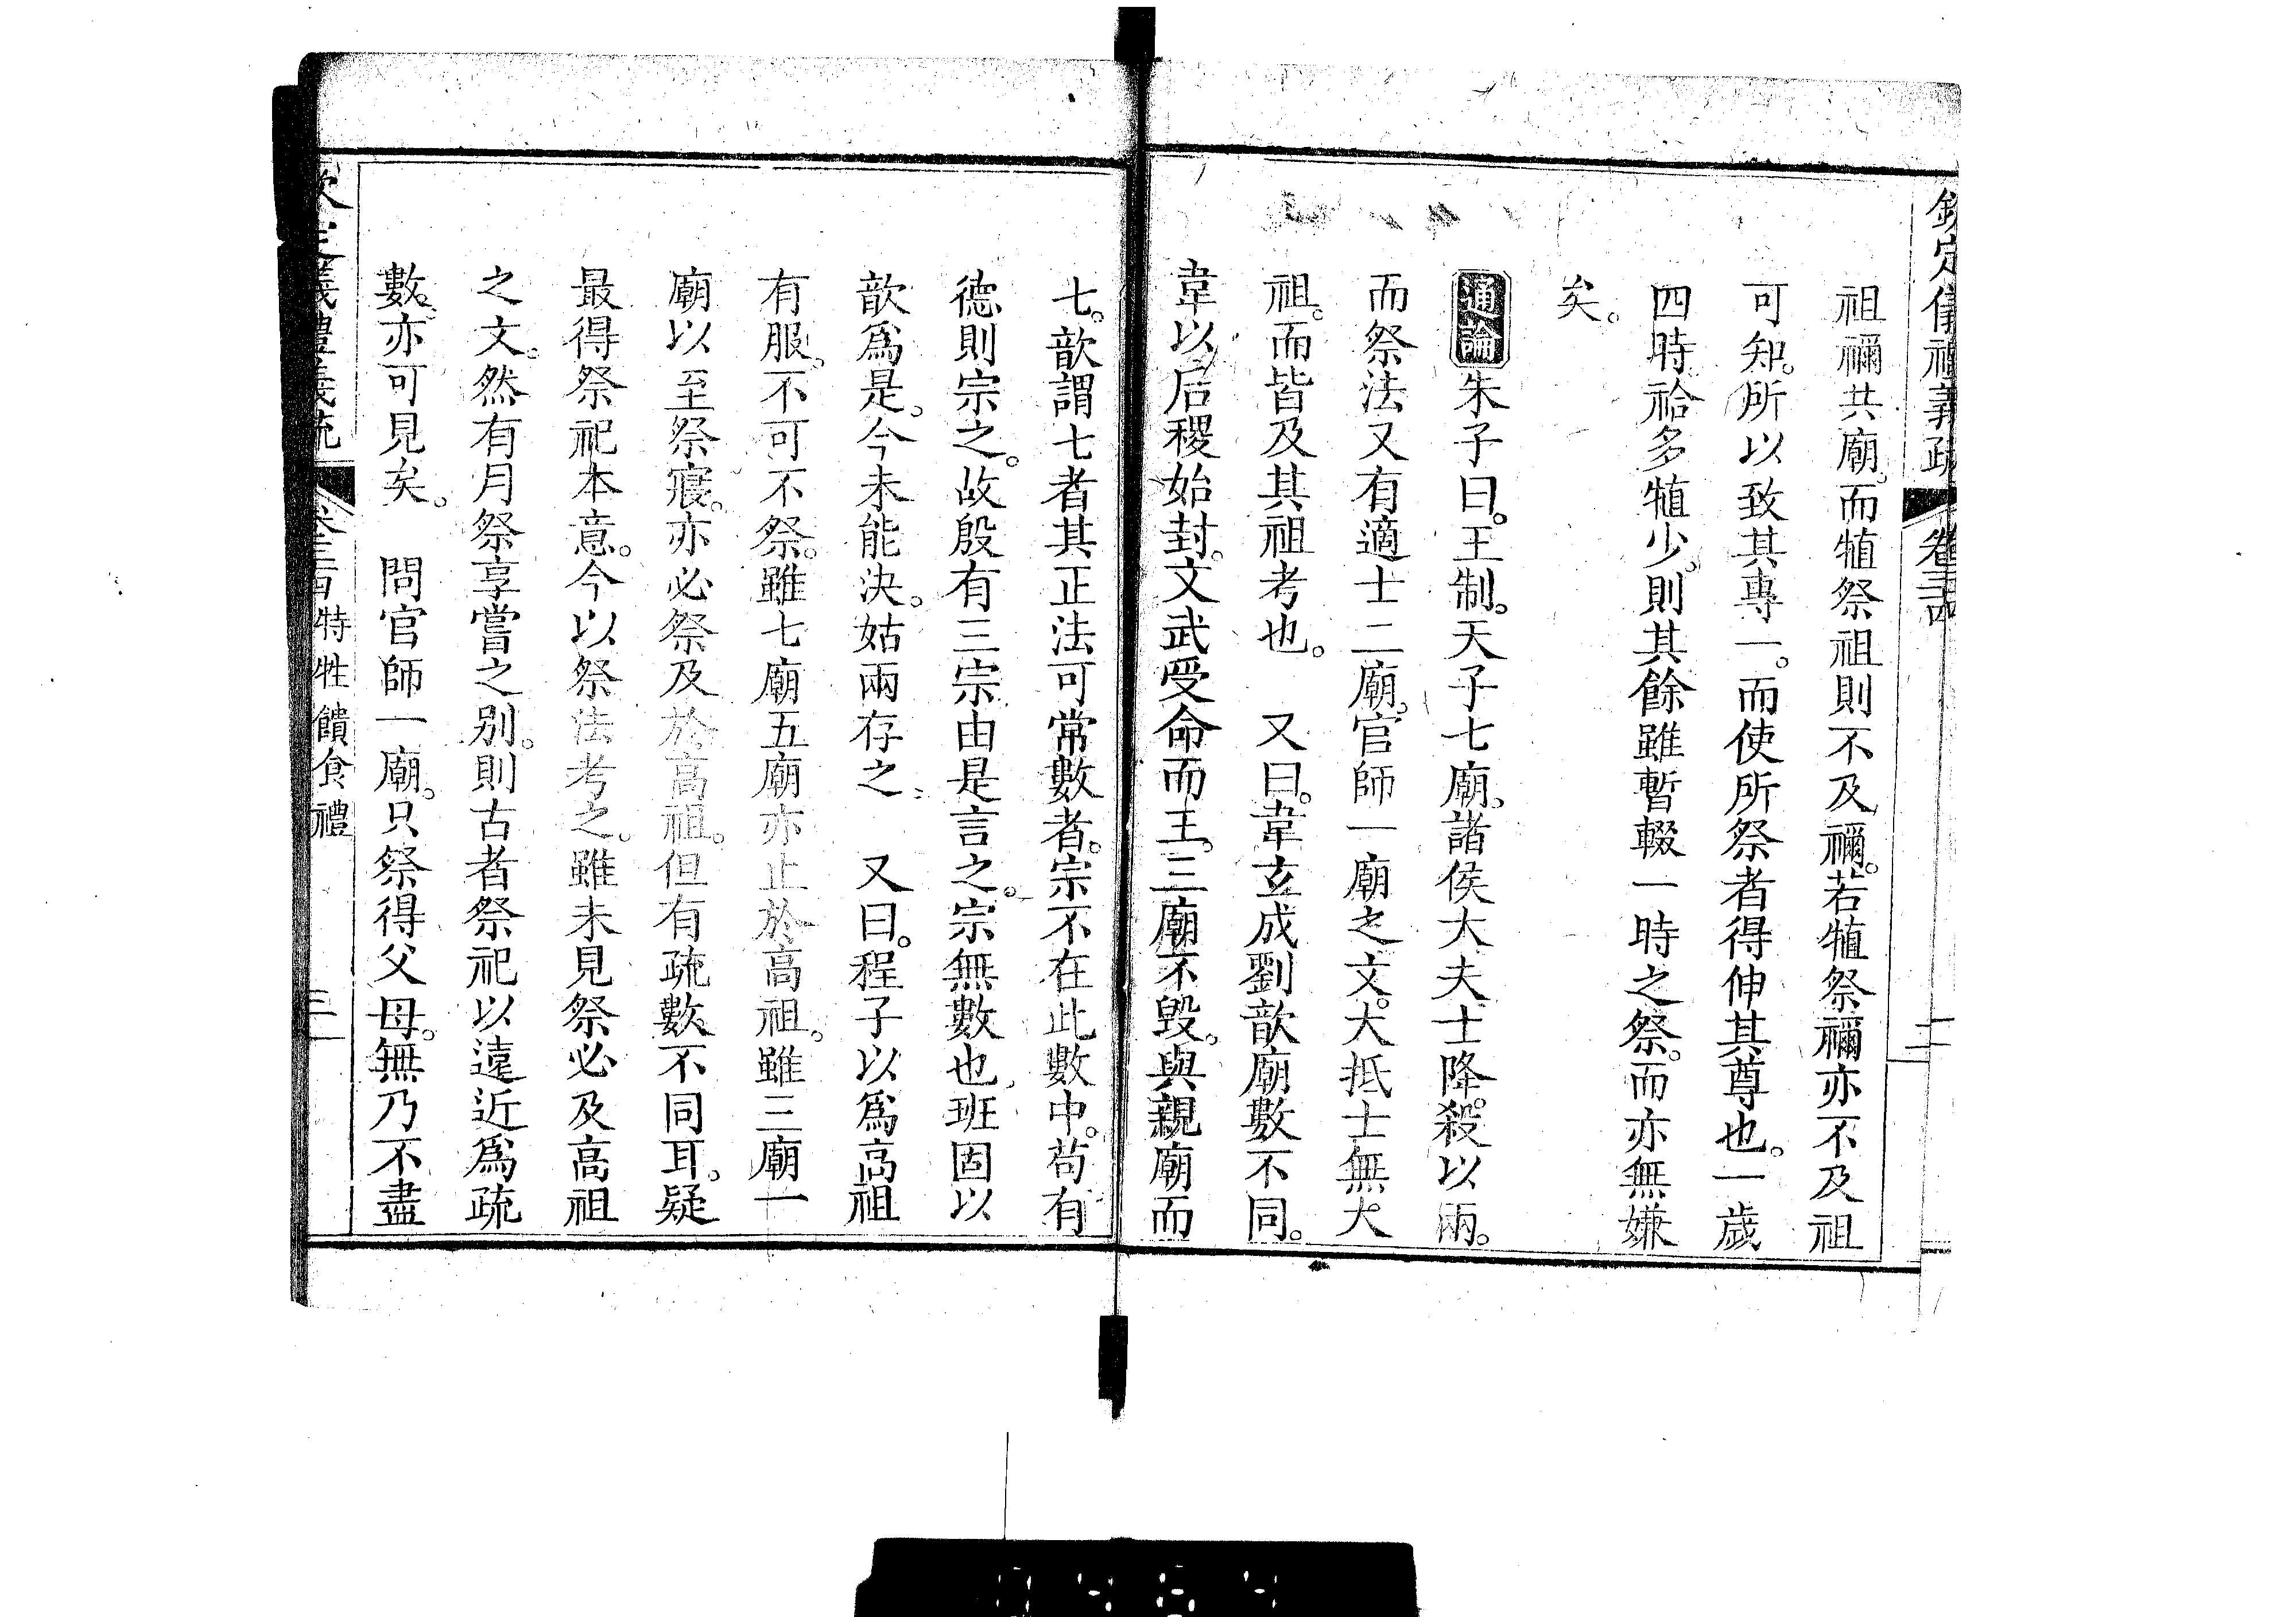 欽定儀禮義疏 卷三十四 二
祖禰共廟。而犆祭祖則不及禰。若犆祭禰亦不及祖
可知。所以致其專一。而使所祭者得伸其尊也。一歲
四時。祫多犆少。則其餘雖暫輟一時之祭。而亦無嫌
矣。
通論 朱子曰。王制。天子七廟。諸侯大夫士降殺以兩。
而祭法又有適士二廟。官師一廟之文。大抵士無大
祖。而皆及其祖考也。 又曰。韋玄成劉歆廟數不同。
韋以后稷始封。文武受命而王。三廟不毀。與親廟而
七。歆謂七者其正法可常數者。宗不在此數中。苟有
德則宗之。故殷有三宗由是言之。宗無數也。班固以
歆爲是。今未能決。姑兩存之。 又曰。程子以爲高祖
有服。不可不祭。雖七廟五廟亦止於高祖。雖三廟一
廟以至祭寢。亦必祭及於高祖。但有疏數不同耳。疑
最得祭祀本意。今以祭法考之。雖未見祭必及高祖
之文。然有月祭享嘗之别。則古者祭祀以遠近爲疏
數。亦可見矣。 問官師一廟。只祭得父母。無乃不盡
欽定儀禮義疏 卷三十四 特牲饋食禮 三